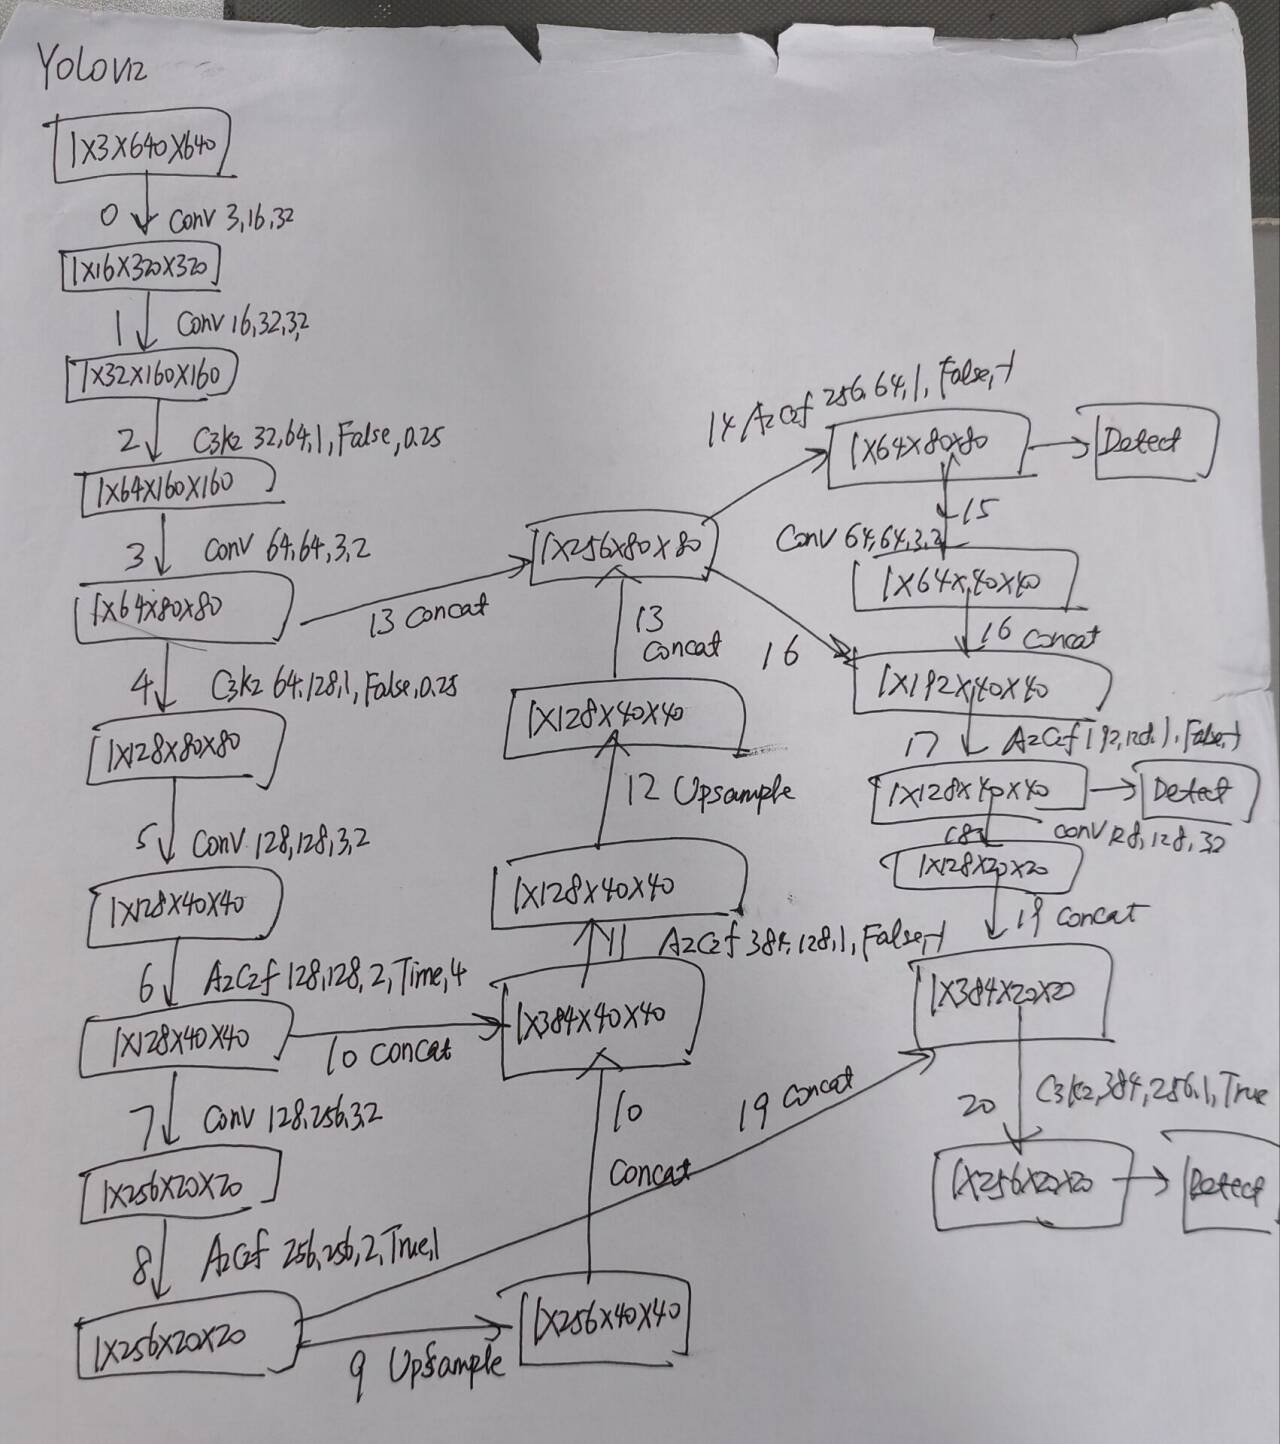 YOLOV12
1X3X640X640
0 Conv 3,16,32
1X16X320X320
1 Conv 16,32,3,2
1X32X160X160
2 C3K2 32,64,1,False,0.25
1X64X160X160
3 Conv 64,64,3,2
1X64X80X80
13 Concat
4 C3K2 64,128,1,False,0.25
1X128X80X80
5 Conv 128,128,3,2
1X128X40X40
6 A2C2f 128,128,2,Time,4
1X128X40X40
10 Concat
7 Conv 128,256,3,2
1X256X20X20
8 A2C2f 256,256,2,True,1
1X256X20X20
9 Upsample
1X256X40X40
10
Concat
1X384X40X40
11 A2C2f 384,128,1,False,-1
1X128X40X40
12 Upsample
1X128X40X40
13
Concat
1X256X80X80
14 A2C2f 256,64,1,False,-1
1X64X80X80
Detect
15
Conv 64,64,3,2
1X64X40X40
16 Concat
16
1X192X40X40
17 A2C2f 192,128,1,False,-1
1X128X40X40
Detect
18 Conv 128,128,32
1X128X20X20
19 Concat
19 Concat
1X384X20X20
20 C3K2,384,256,1,True
1X256X20X20
Detect